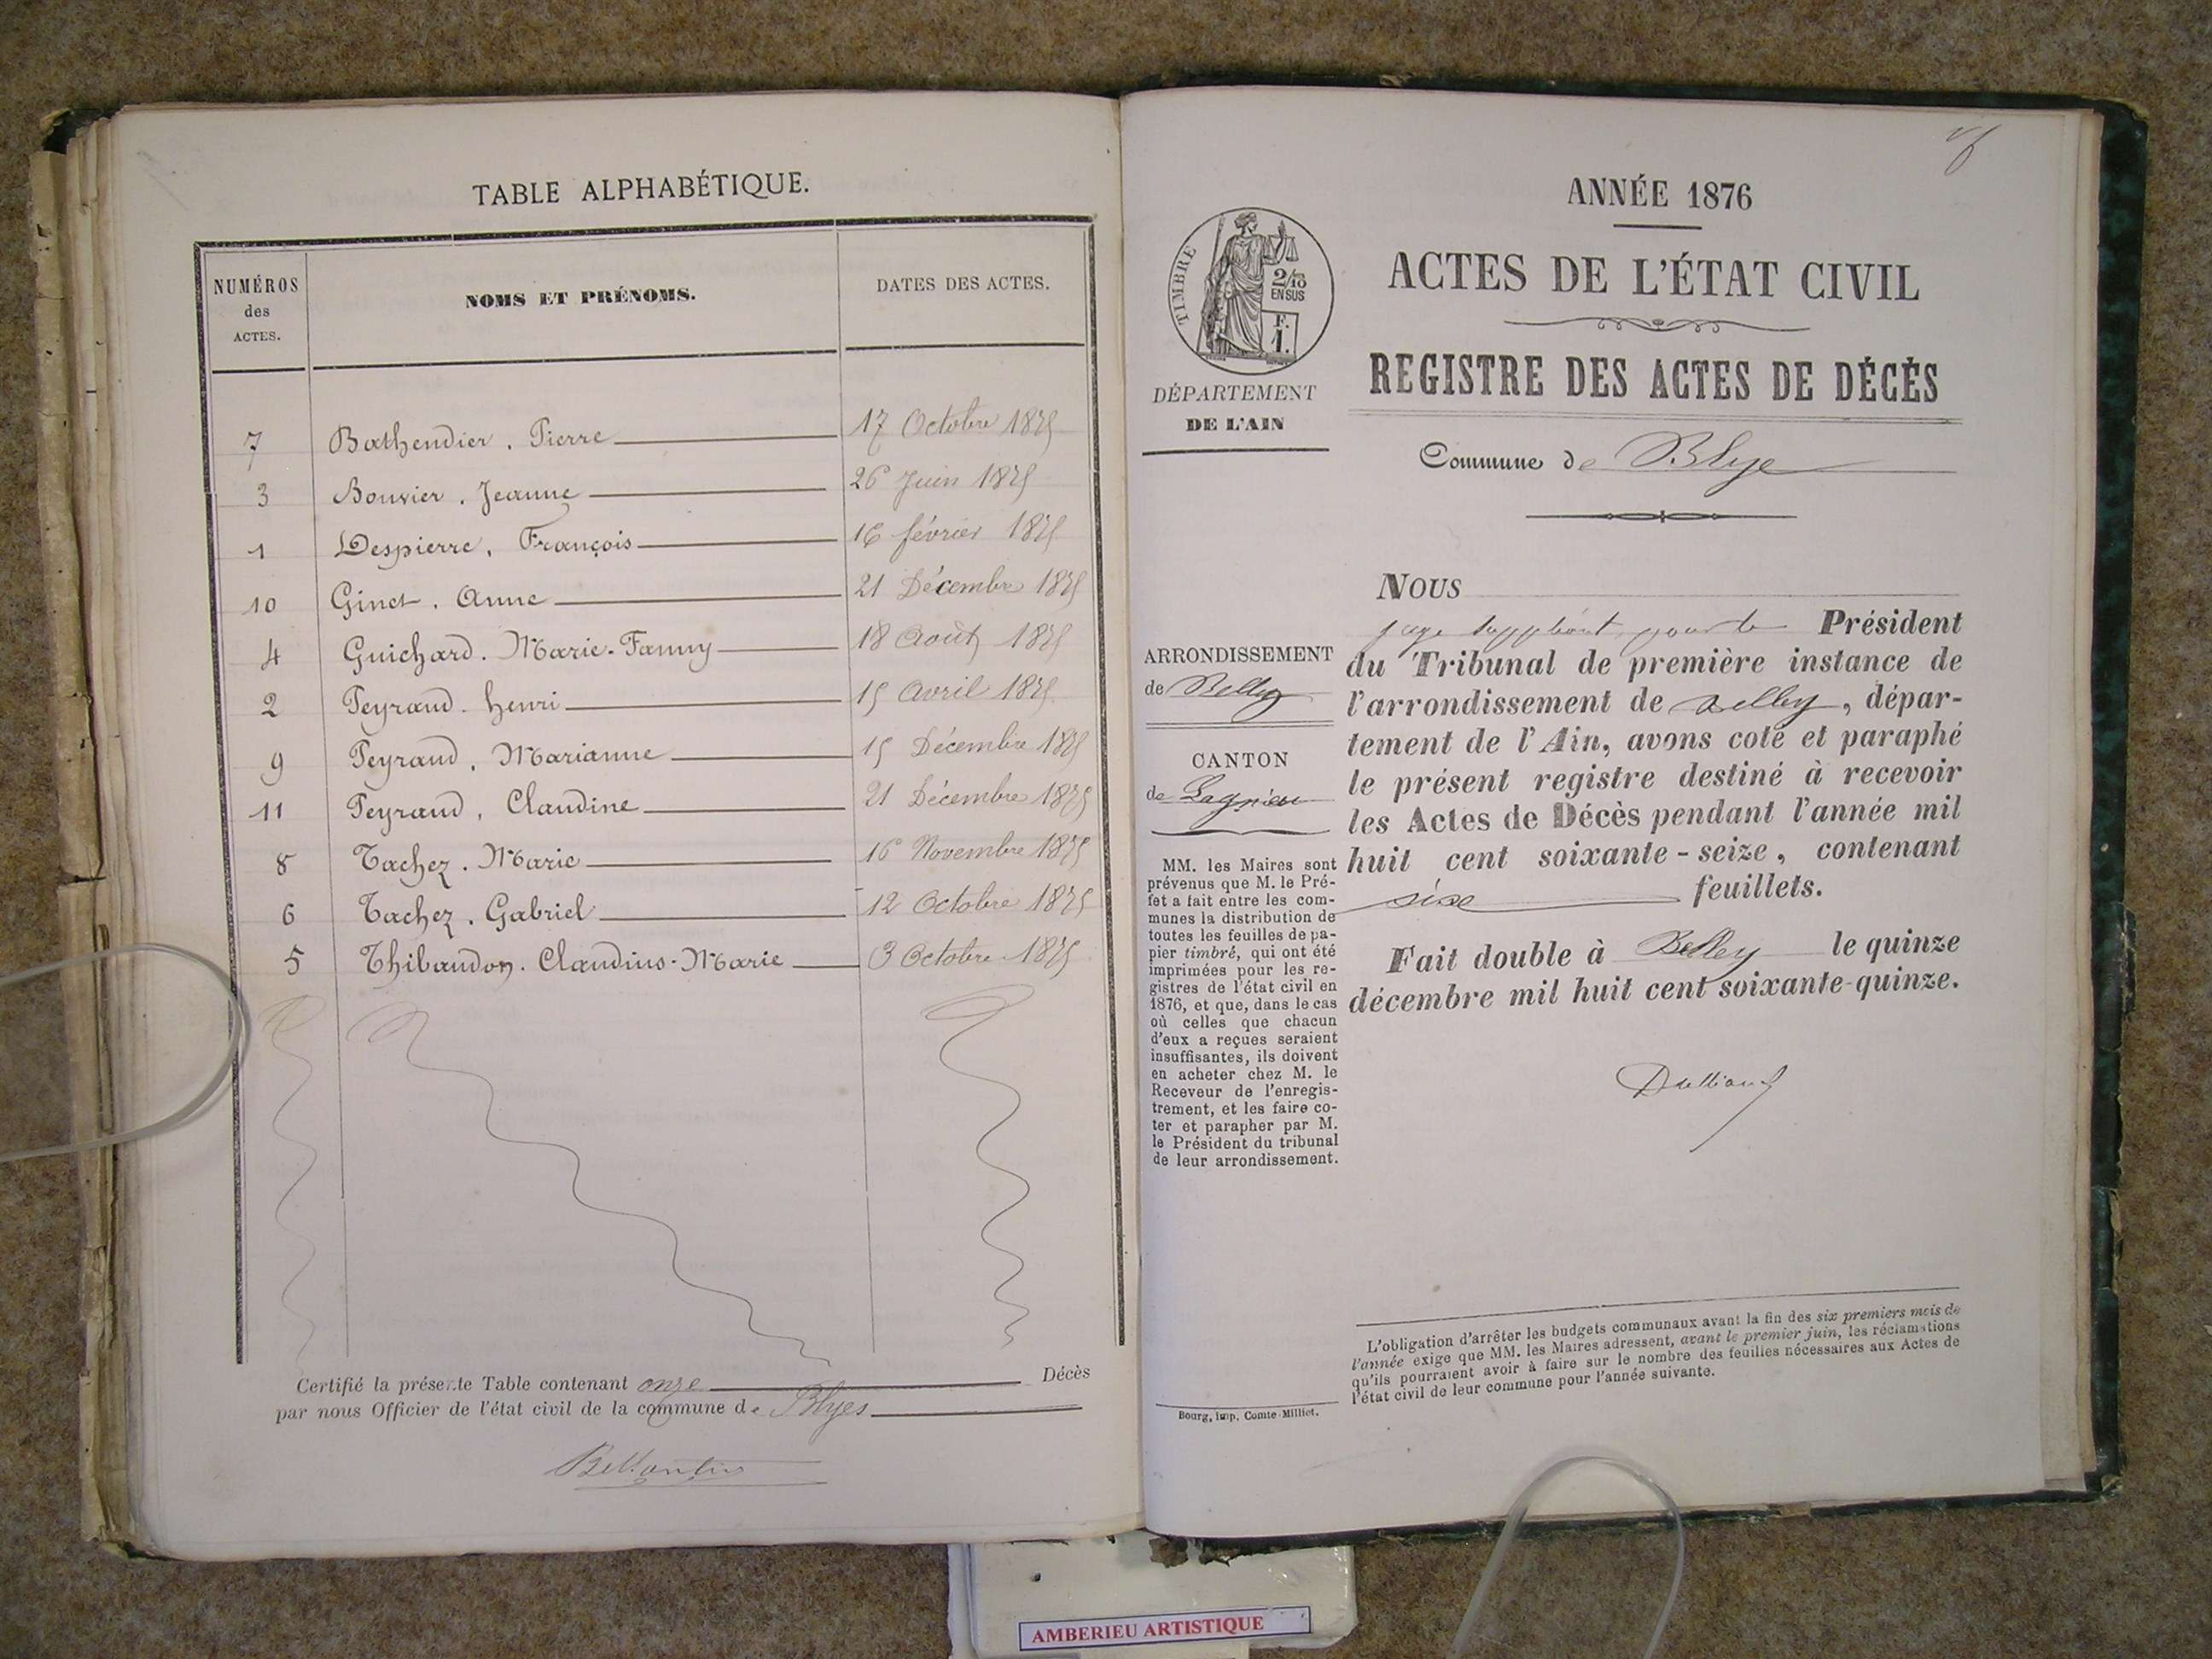 TABLE ALPHABÉTIQUE.
NUMÉROS des ACTES. NOMS ET PRÉNOMS. DATES DES ACTES.
7 Bathendier, Pierre 17 Octobre 1875
3 Bouvier, Jeanne 26 Juin 1875
1 Despierre, François 16 février 1875
10 Ginet, Anne 21 Décembre 1875
4 Guichard. Marie-Fanny 18 Août 1875
2 Peyraud. henri 15 Avril 1875
9 Peyraud, Marianne 15 Décembre 1875
11 Peyraud, Claudine 21 Décembre 1875
8 Tachez. Marie 16 Novembre 1875
6 Tachez. Gabriel 12 Octobre 1875
5 Thibaudon. Claudius-Marie 3 Octobre 1875
Certifié la présente Table contenant onze Décès
par nous Officier de l'état civil de la commune de Blyes
ANNÉE 1876
ACTES DE L'ÉTAT CIVIL
REGISTRE DES ACTES DE DÉCÈS
Commune de Blye
TIMBRE
2/10
EN SUS
F.
1.
DÉPARTEMENT
DE L'AIN
ARRONDISSEMENT
de Belley
CANTON
de Lagnieu
MM. les Maires sont
prévenus que M. le Pré-
fet a fait entre les com-
munes la distribution de
toutes les feuilles de pa-
pier timbré, qui ont été
imprimées pour les re-
gistres de l'état civil en
1876, et que, dans le cas
où celles que chacun
d'eux a reçues seraient
insuffisantes, ils doivent
en acheter chez M. le
Receveur de l'enregis-
trement, et les faire co-
ter et parapher par M.
le Président du tribunal
de leur arrondissement.
NOUS
juge suppléant pour le Président
du Tribunal de première instance de
l'arrondissement de Belley, dépar-
tement de l'Ain, avons coté et paraphé
le présent registre destiné à recevoir
les Actes de Décès pendant l'année mil
huit cent soixante-seize, contenant
six feuillets.
Fait double à Belley le quinze
décembre mil huit cent soixante-quinze.
L'obligation d'arrêter les budgets communaux avant la fin des six premiers mois de
l'année exige que MM. les Maires adressent, avant le premier juin, les réclamations
qu'ils pourraient avoir à faire sur le nombre des feuilles nécessaires aux Actes de
l'état civil de leur commune pour l'année suivante.
Bourg, imp. Comte-Milliet.
AMBERIEU ARTISTIQUE